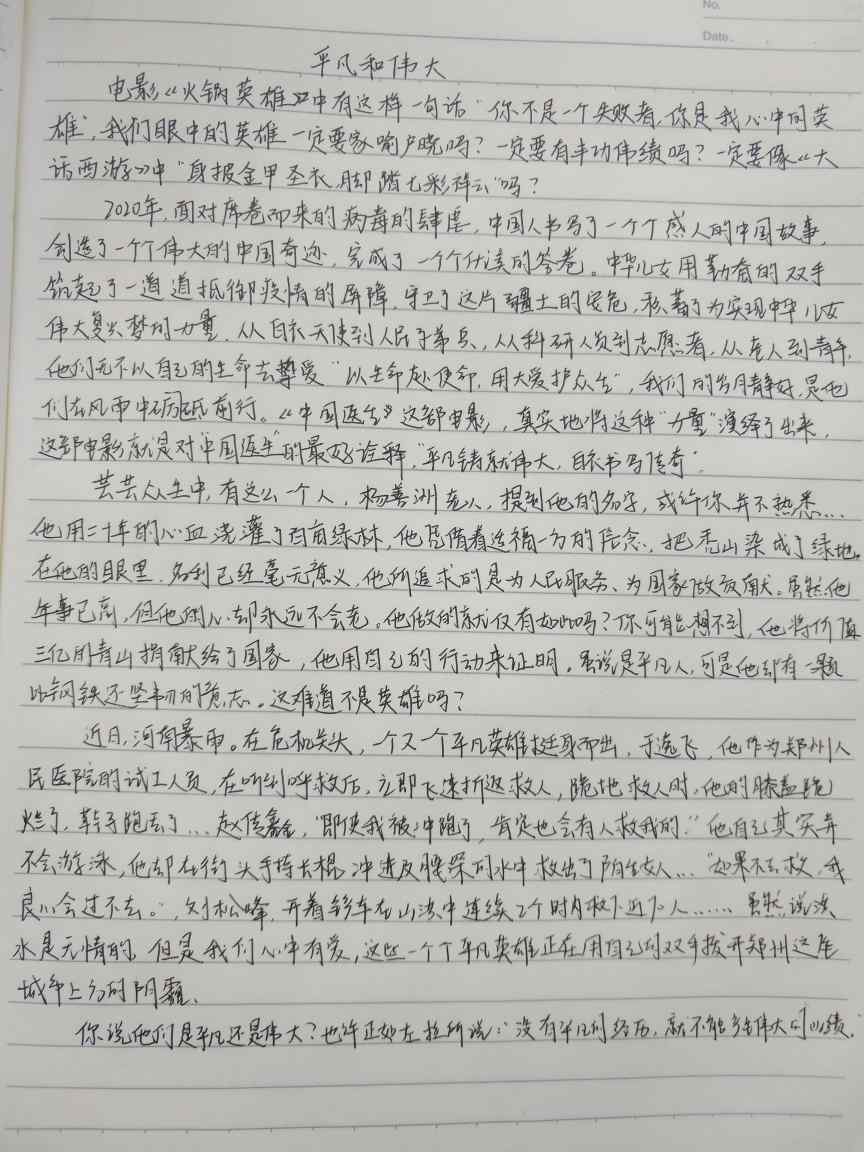 No.
Date.
平凡和伟大
电影《火锅英雄》中有这样一句话"你不是一个失败者,你是我心中的英
雄",我们眼中的英雄一定要家喻户晓吗?一定要有丰功伟绩吗?一定要像《大
话西游》中"身披金甲圣衣,脚踏七彩祥云"吗?
2020年,面对席卷而来的病毒的肆虐,中国人书写了一个个感人的中国故事,
创造了一个个伟大的中国奇迹,完成了一个个优秀的答卷。中华儿女用勤奋的双手
筑起了一道道抵御疫情的屏障,守卫了这片疆土的安危,积蓄了为实现中华儿女
伟大复兴梦的力量,从白衣天使到人民子弟兵,从科研人员到志愿者,从老人到青年,
他们无不以自己的生命去挚爱"以生命赴使命,用大爱护众生",我们的岁月静好,是他
们在风雨中砺砥前行。《中国医生》这部电影,真实地将这种"力量"演绎了出来,
这部电影就是对"中国医生"的最好诠释,"平凡铸就伟大,白衣书写传奇"
芸芸众生中,有这么一个人,杨善洲老人,提到他的名字,或许你并不熟悉...
他用二十年的心血浇灌了百亩绿林,他凭借着造福一方的信念,把秃山染成了绿地。
在他的眼里,名利已经毫无意义,他所追求的是为人民服务、为国家做贡献。虽然他
年事已高,但他的心却永远不会老。他做的就仅有如此吗?你可能想不到,他将价值
三亿的青山捐献给了国家,他用自己的行动来证明,虽说是平凡人,可是他却有一颗
比钢铁还坚韧的意志。这难道不是英雄吗?
近日,河南暴雨。在危机关头,一个又一个平凡英雄挺身而出,于逸飞,他作为郑州人
民医院的试工人员,在听到呼救后,立即飞速折返救人,跪地救人时,他的膝盖跪
烂了,鞋子跑丢了...赵信鑫,"即使我被冲跑了,肯定也会有人救我的."他自己其实并
不会游泳,他却在街头手持长棍,冲进及腰深的水中救出了陌生女人..."如果不去救,我
良心会过不去。",刘松峰,开着轿车在山洪中连续2个时内救下近70人......虽然说洪
水是无情的,但是我们心中有爱,这些一个个平凡英雄正在用自己的双手拨开郑州这座
城市上方的阴霾、
你说他们是平凡还是伟大?也许正如左拉所说:"没有平凡的经历,就不能铸伟大的业绩."